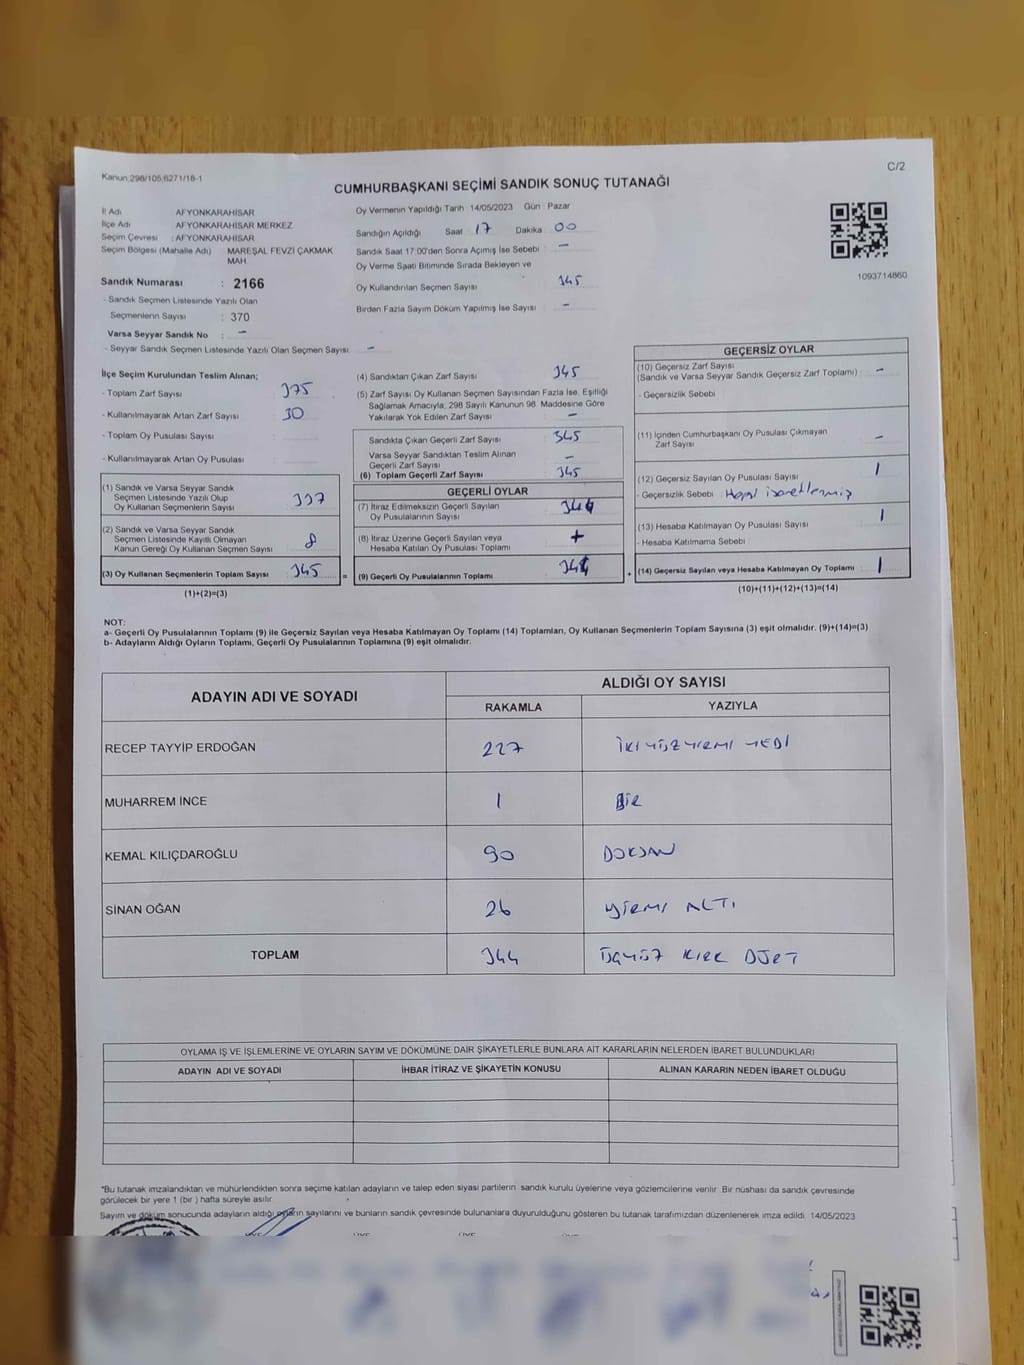 Kanun:298/105,6271/18-1
C/2
CUMHURBAŞKANI SEÇİMİ SANDIK SONUÇ TUTANAĞI
İl Adı AFYONKARAHİSAR
İlçe Adı AFYONKARAHİSAR MERKEZ
Seçim Çevresi : AFYONKARAHİSAR
Seçim Bölgesi (Mahalle Adı) MAREŞAL FEVZİ ÇAKMAK
MAH.
Sandık Numarası : 2166
- Sandık Seçmen Listesinde Yazılı Olan
Seçmenlerin Sayısı : 370
Varsa Seyyar Sandık No : -
- Seyyar Sandık Seçmen Listesinde Yazılı Olan Seçmen Sayısı: -
Oy Vermenin Yapıldığı Tarih 14/05/2023 Gün : Pazar
Sandığın Açıldığı Saat 17 Dakika 00
Sandık Saat 17:00'den Sonra Açımış İse Sebebi : -
Oy Verme Saati Bitiminde Sırada Bekleyen ve
Oy Kullandırılan Seçmen Sayısı 345
Birden Fazla Sayım Döküm Yapılmış İse Sayısı : -
1093714860
İlçe Seçim Kurulundan Teslim Alınan;
- Toplam Zarf Sayısı : 375
- Kullanılmayarak Artan Zarf Sayısı : 30
- Toplam Oy Pusulası Sayısı :
- Kullanılmayarak Artan Oy Pusulası :
(1) Sandık ve Varsa Seyyar Sandık
Seçmen Listesinde Yazılı Olup
Oy Kullanan Seçmenlerin Sayısı : 337
(2) Sandık ve Varsa Seyyar Sandık
Seçmen Listesinde Kayıtlı Olmayan
Kanun Gereği Oy Kullanan Seçmen Sayısı : 8
(3) Oy Kullanan Seçmenlerin Toplam Sayısı : 345
(1)+(2)=(3)
(4) Sandıktan Çıkan Zarf Sayısı : 345
(5) Zarf Sayısı Oy Kullanan Seçmen Sayısından Fazla İse, Eşitliği
Sağlamak Amacıyla; 298 Sayılı Kanunun 98. Maddesine Göre
Yakılarak Yok Edilen Zarf Sayısı : -
Sandıkta Çıkan Geçerli Zarf Sayısı : 345
Varsa Seyyar Sandıktan Teslim Alınan
Geçerli Zarf Sayısı : -
(6) Toplam Geçerli Zarf Sayısı : 345
GEÇERLİ OYLAR
(7) İtiraz Edilmeksizin Geçerli Sayılan
Oy Pusulalarının Sayısı : 344
(8) İtiraz Üzerine Geçerli Sayılan veya
Hesaba Katılan Oy Pusulası Toplamı :
= (9) Geçerli Oy Pusulalarının Toplamı : 344
GEÇERSİZ OYLAR
(10) Geçersiz Zarf Sayısı
(Sandık ve Varsa Seyyar Sandık Geçersiz Zarf Toplamı) : -
- Geçersizlik Sebebi :
(11) İçinden Cumhurbaşkanı Oy Pusulası Çıkmayan
Zarf Sayısı : -
(12) Geçersiz Sayılan Oy Pusulası Sayısı : 1
- Geçersizlik Sebebi : işaretlenmiş
(13) Hesaba Katılmayan Oy Pusulası Sayısı : 1
- Hesaba Katılmama Sebebi :
+ (14) Geçersiz Sayılan veya Hesaba Katılmayan Oy Toplamı : 1
(10)+(11)+(12)+(13)=(14)
NOT:
a- Geçerli Oy Pusulalarının Toplamı (9) ile Geçersiz Sayılan veya Hesaba Katılmayan Oy Toplamı (14) Toplamları, Oy Kullanan Seçmenlerin Toplam Sayısına (3) eşit olmalıdır. (9)+(14)=(3)
b- Adayların Aldığı Oyların Toplamı, Geçerli Oy Pusulalarının Toplamına (9) eşit olmalıdır.
ADAYIN ADI VE SOYADI ALDIĞI OY SAYISI
RAKAMLA YAZIYLA
RECEP TAYYİP ERDOĞAN 227 İKİYÜZYİRMİ YEDİ
MUHARREM İNCE 1 BİR
KEMAL KILIÇDAROĞLU 90 DOKSAN
SİNAN OĞAN 26 YİRMİ ALTI
TOPLAM 344 ÜÇYÜZ KIRK DÖRT
OYLAMA İŞ VE İŞLEMLERİNE VE OYLARIN SAYIM VE DÖKÜMÜNE DAİR ŞİKAYETLERLE BUNLARA AİT KARARLARIN NELERDEN İBARET BULUNDUKLARI
ADAYIN ADI VE SOYADI İHBAR İTİRAZ VE ŞİKAYETİN KONUSU ALINAN KARARIN NEDEN İBARET OLDUĞU
*Bu tutanak imzalandıktan ve mühürlendikten sonra seçime katılan adayların ve talep eden siyasi partilerin sandık kurulu üyelerine veya gözlemcilerine verilir. Bir nüshası da sandık çevresinde
görülecek bir yere 1 (bir ) hafta süreyle asılır.
Sayım ve döküm sonucunda adayların aldığı oyların sayılarını ve bunların sandık çevresinde bulunanlara duyurulduğunu gösteren bu tutanak tarafımızdan düzenlenerek imza edildi. 14/05/2023